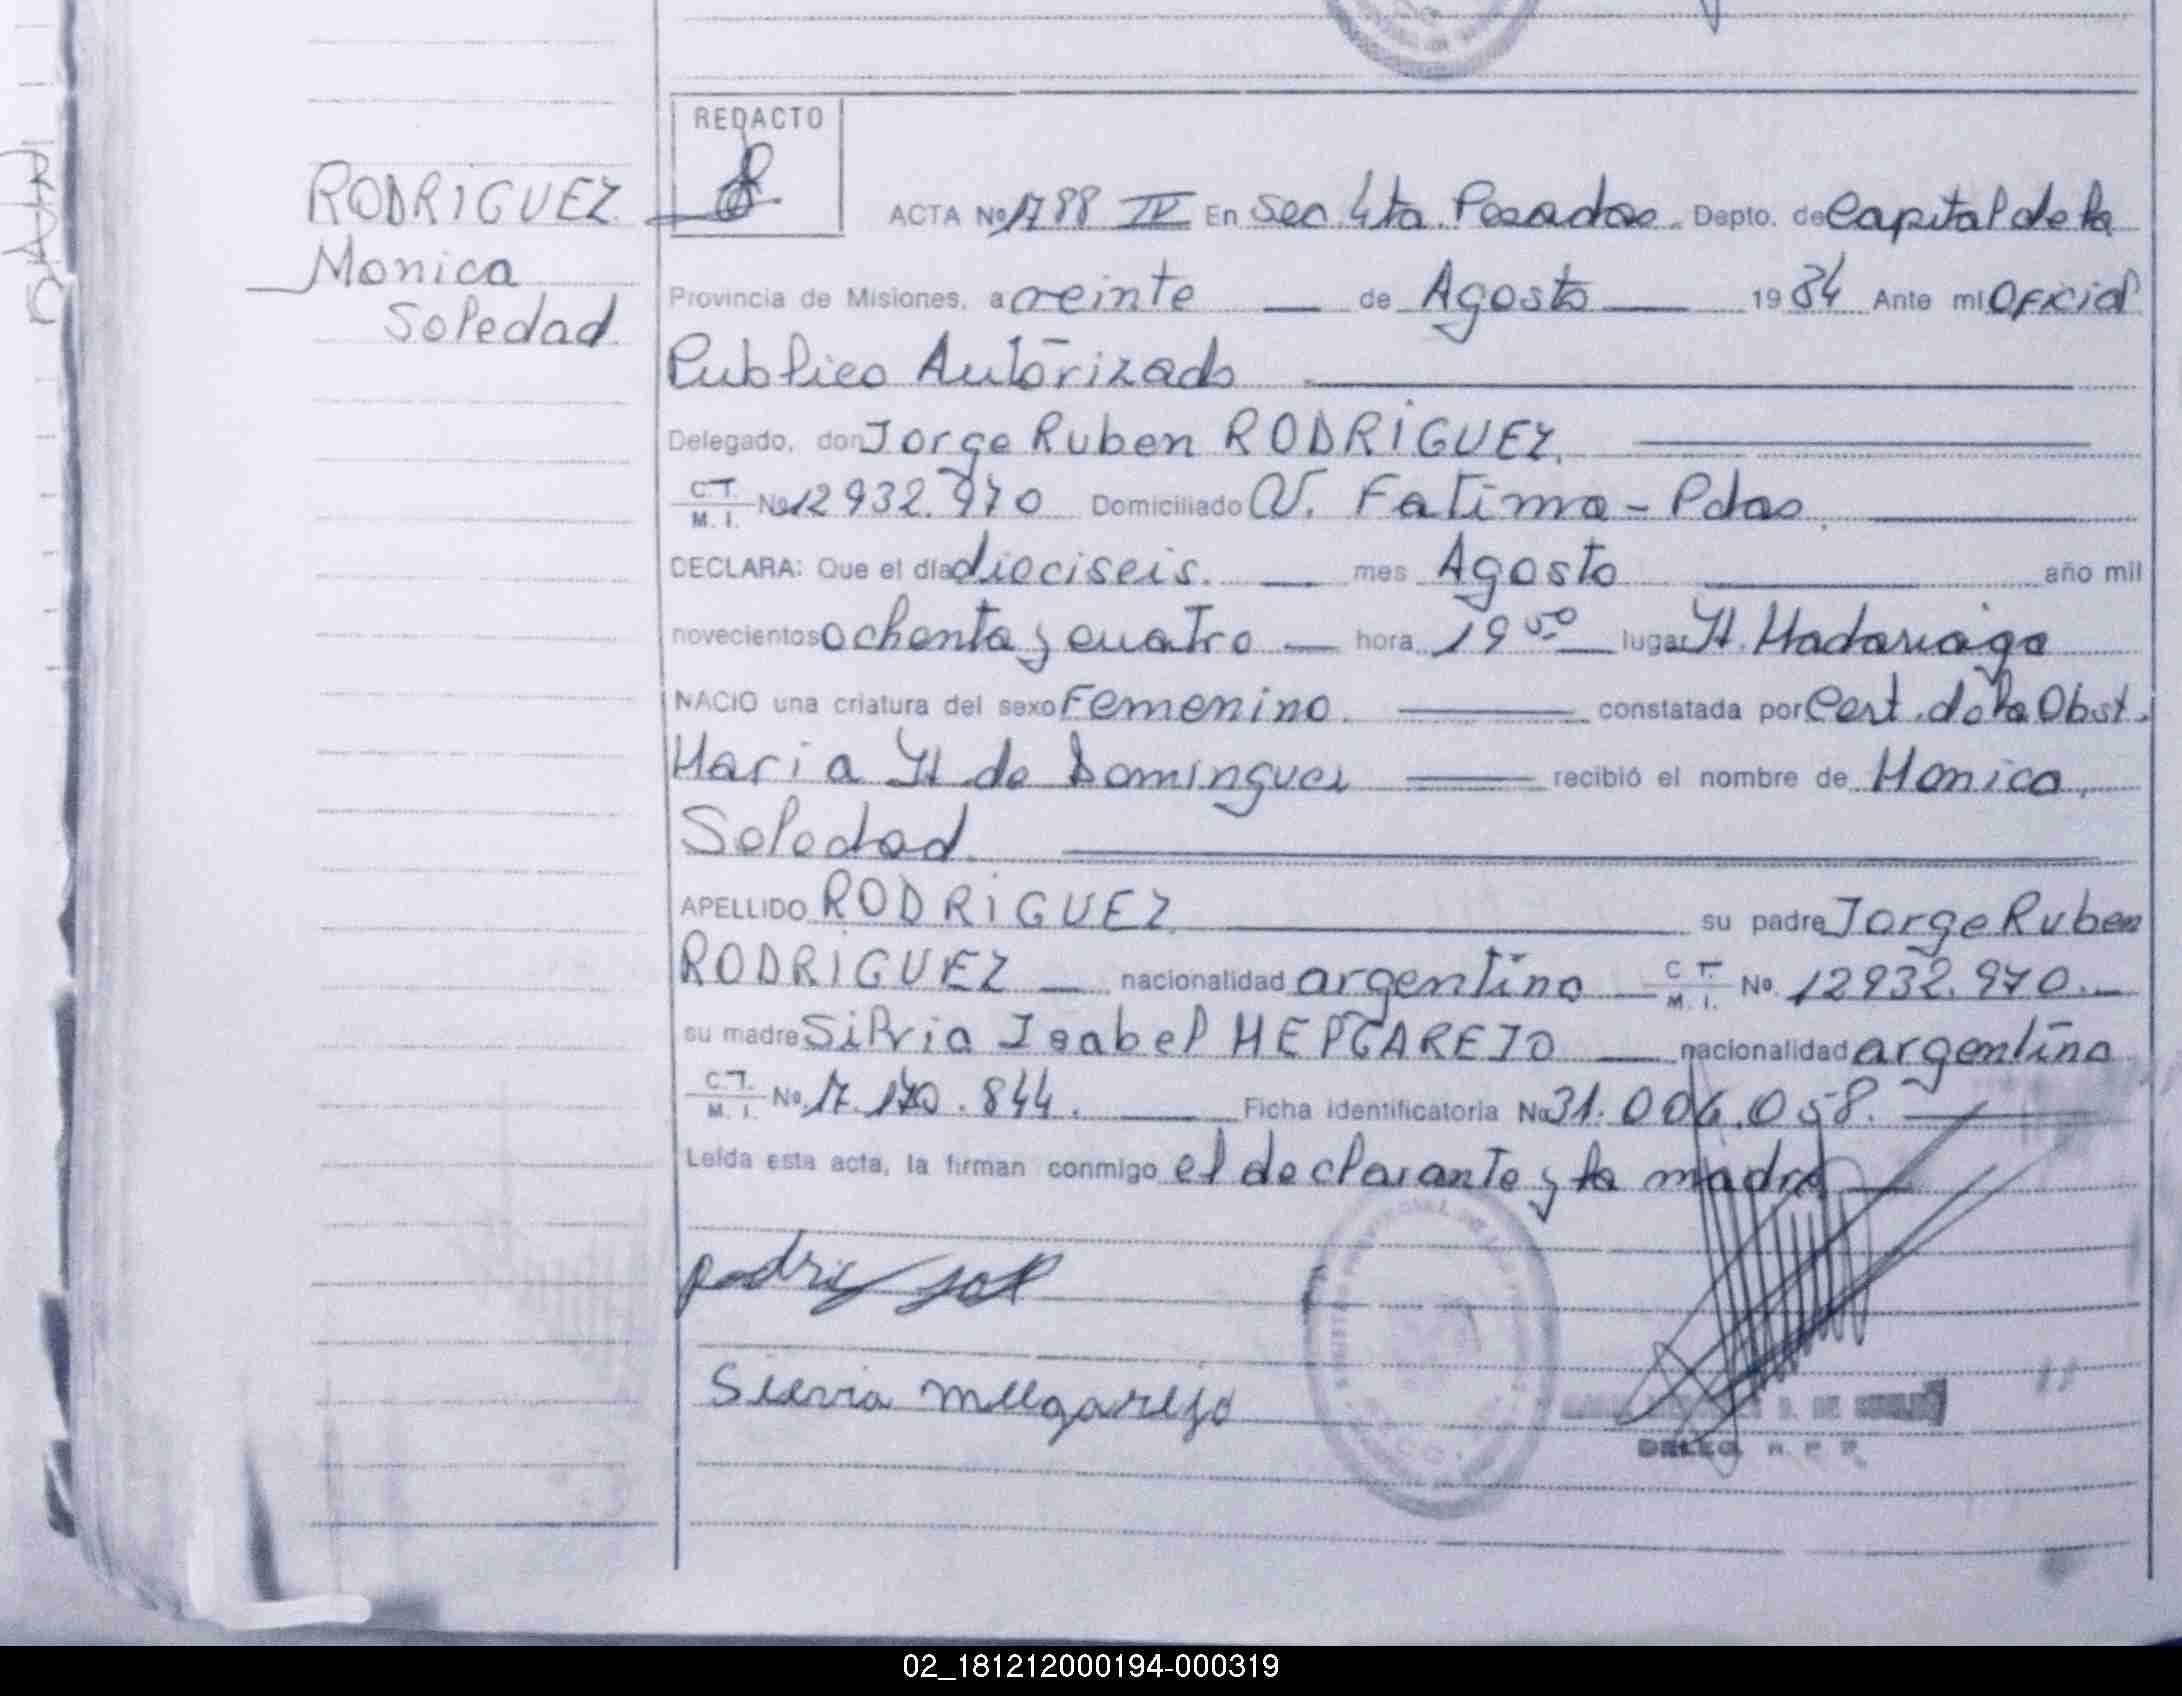 REDACTO
RODRIGUEZ
Monica
Soledad
ACTA Nº 1788 IV En Sec. 4ta. Posadas. Depto. de Capital de la
Provincia de Misiones, a veinte de Agosto 1984 Ante mi Oficial
Publico Autorizado
Delegado, don Jorge Ruben RODRIGUEZ.
C.T. M. I. Nº 12932.970 Domiciliado V. Fatima - Pdas.
DECLARA: Que el día dieciseis. mes Agosto año mil
novecientos ochenta y cuatro hora 19 50 lugar H. Madariaga
NACIO una criatura del sexo Femenino. constatada por Cert. de la Obst.
Maria H de Dominguez recibió el nombre de Monica
Soledad.
APELLIDO RODRIGUEZ su padre Jorge Ruben
RODRIGUEZ nacionalidad argentino C.T. M. I. Nº 12932.970.
su madre Silvia Isabel MELGAREJO nacionalidad argentina
C.T. M. I. Nº 17.170.844. Ficha identificatoria Nº 31.006.058.
Leída esta acta, la firman conmigo el declarante y la madre
Silvia Melgarejo
DELEG. R. P. P.
02_181212000194-000319